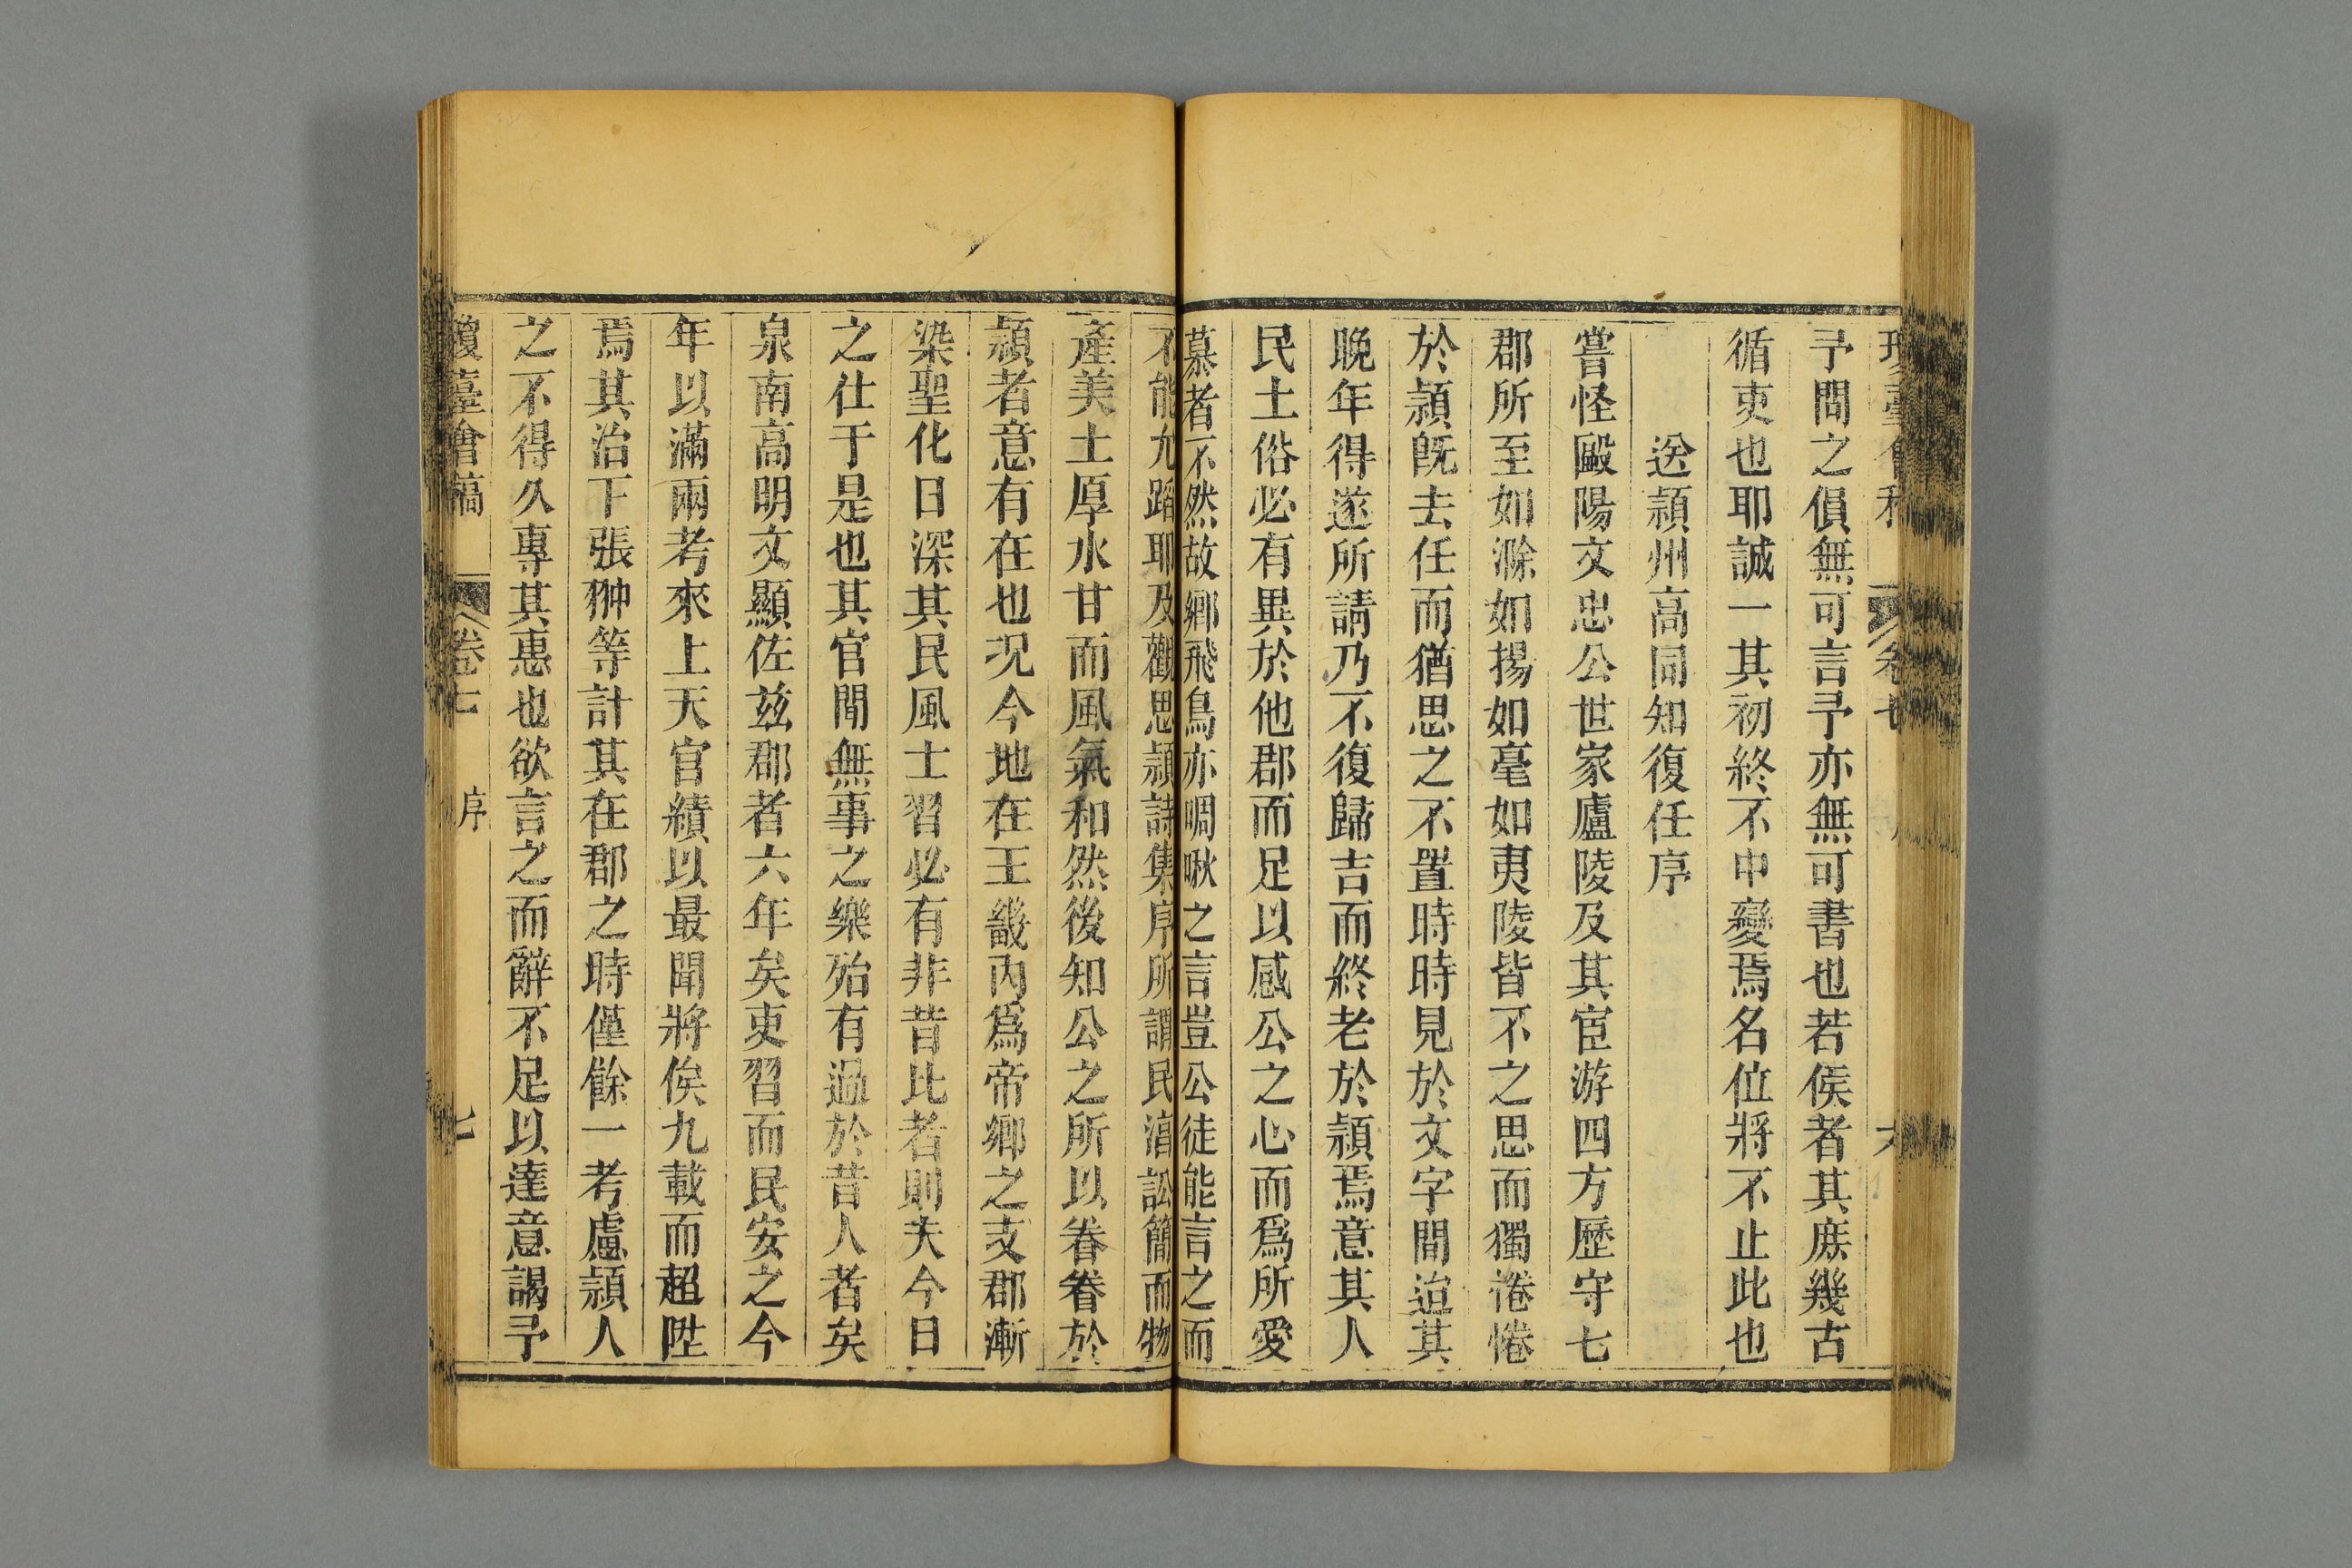 瓊臺會稿 卷七
予問之俱無可言予亦無可書也若侯者其庶幾古
循吏也耶誠一其初終不中變焉名位將不止此也
送頴州高同知復任序
嘗怪歐陽文忠公世家廬陵及其宦游四方歷守七
郡所至如滁如揚如亳如夷陵皆不之思而獨惓惓
於頴旣去任而猶思之不置時時見於文字間迨其
晚年得遂所請乃不復歸吉而終老於頴焉意其人
民土俗必有異於他郡而足以感公之心而爲所愛
慕者不然故鄉飛鳥亦啁啾之言豈公徒能言之而
不能允蹈耶及觀思頴詩集序所謂民淳訟簡而物
產美土厚水甘而風氣和然後知公之所以眷眷於
頴者意有在也况今地在王畿内爲帝鄉之支郡漸
染聖化日深其民風士習必有非昔比者則夫今日
之仕于是也其官閒無事之樂殆有過於昔人者矣
泉南高明文顯佐玆郡者六年矣吏習而民安之今
年以滿兩考來上天官績以最聞將俟九載而超陞
焉其治下張翀等計其在郡之時僅餘一考慮頴人
之不得久專其惠也欲言之而辭不足以達意謁予
瓊臺會稿 卷七 序 七